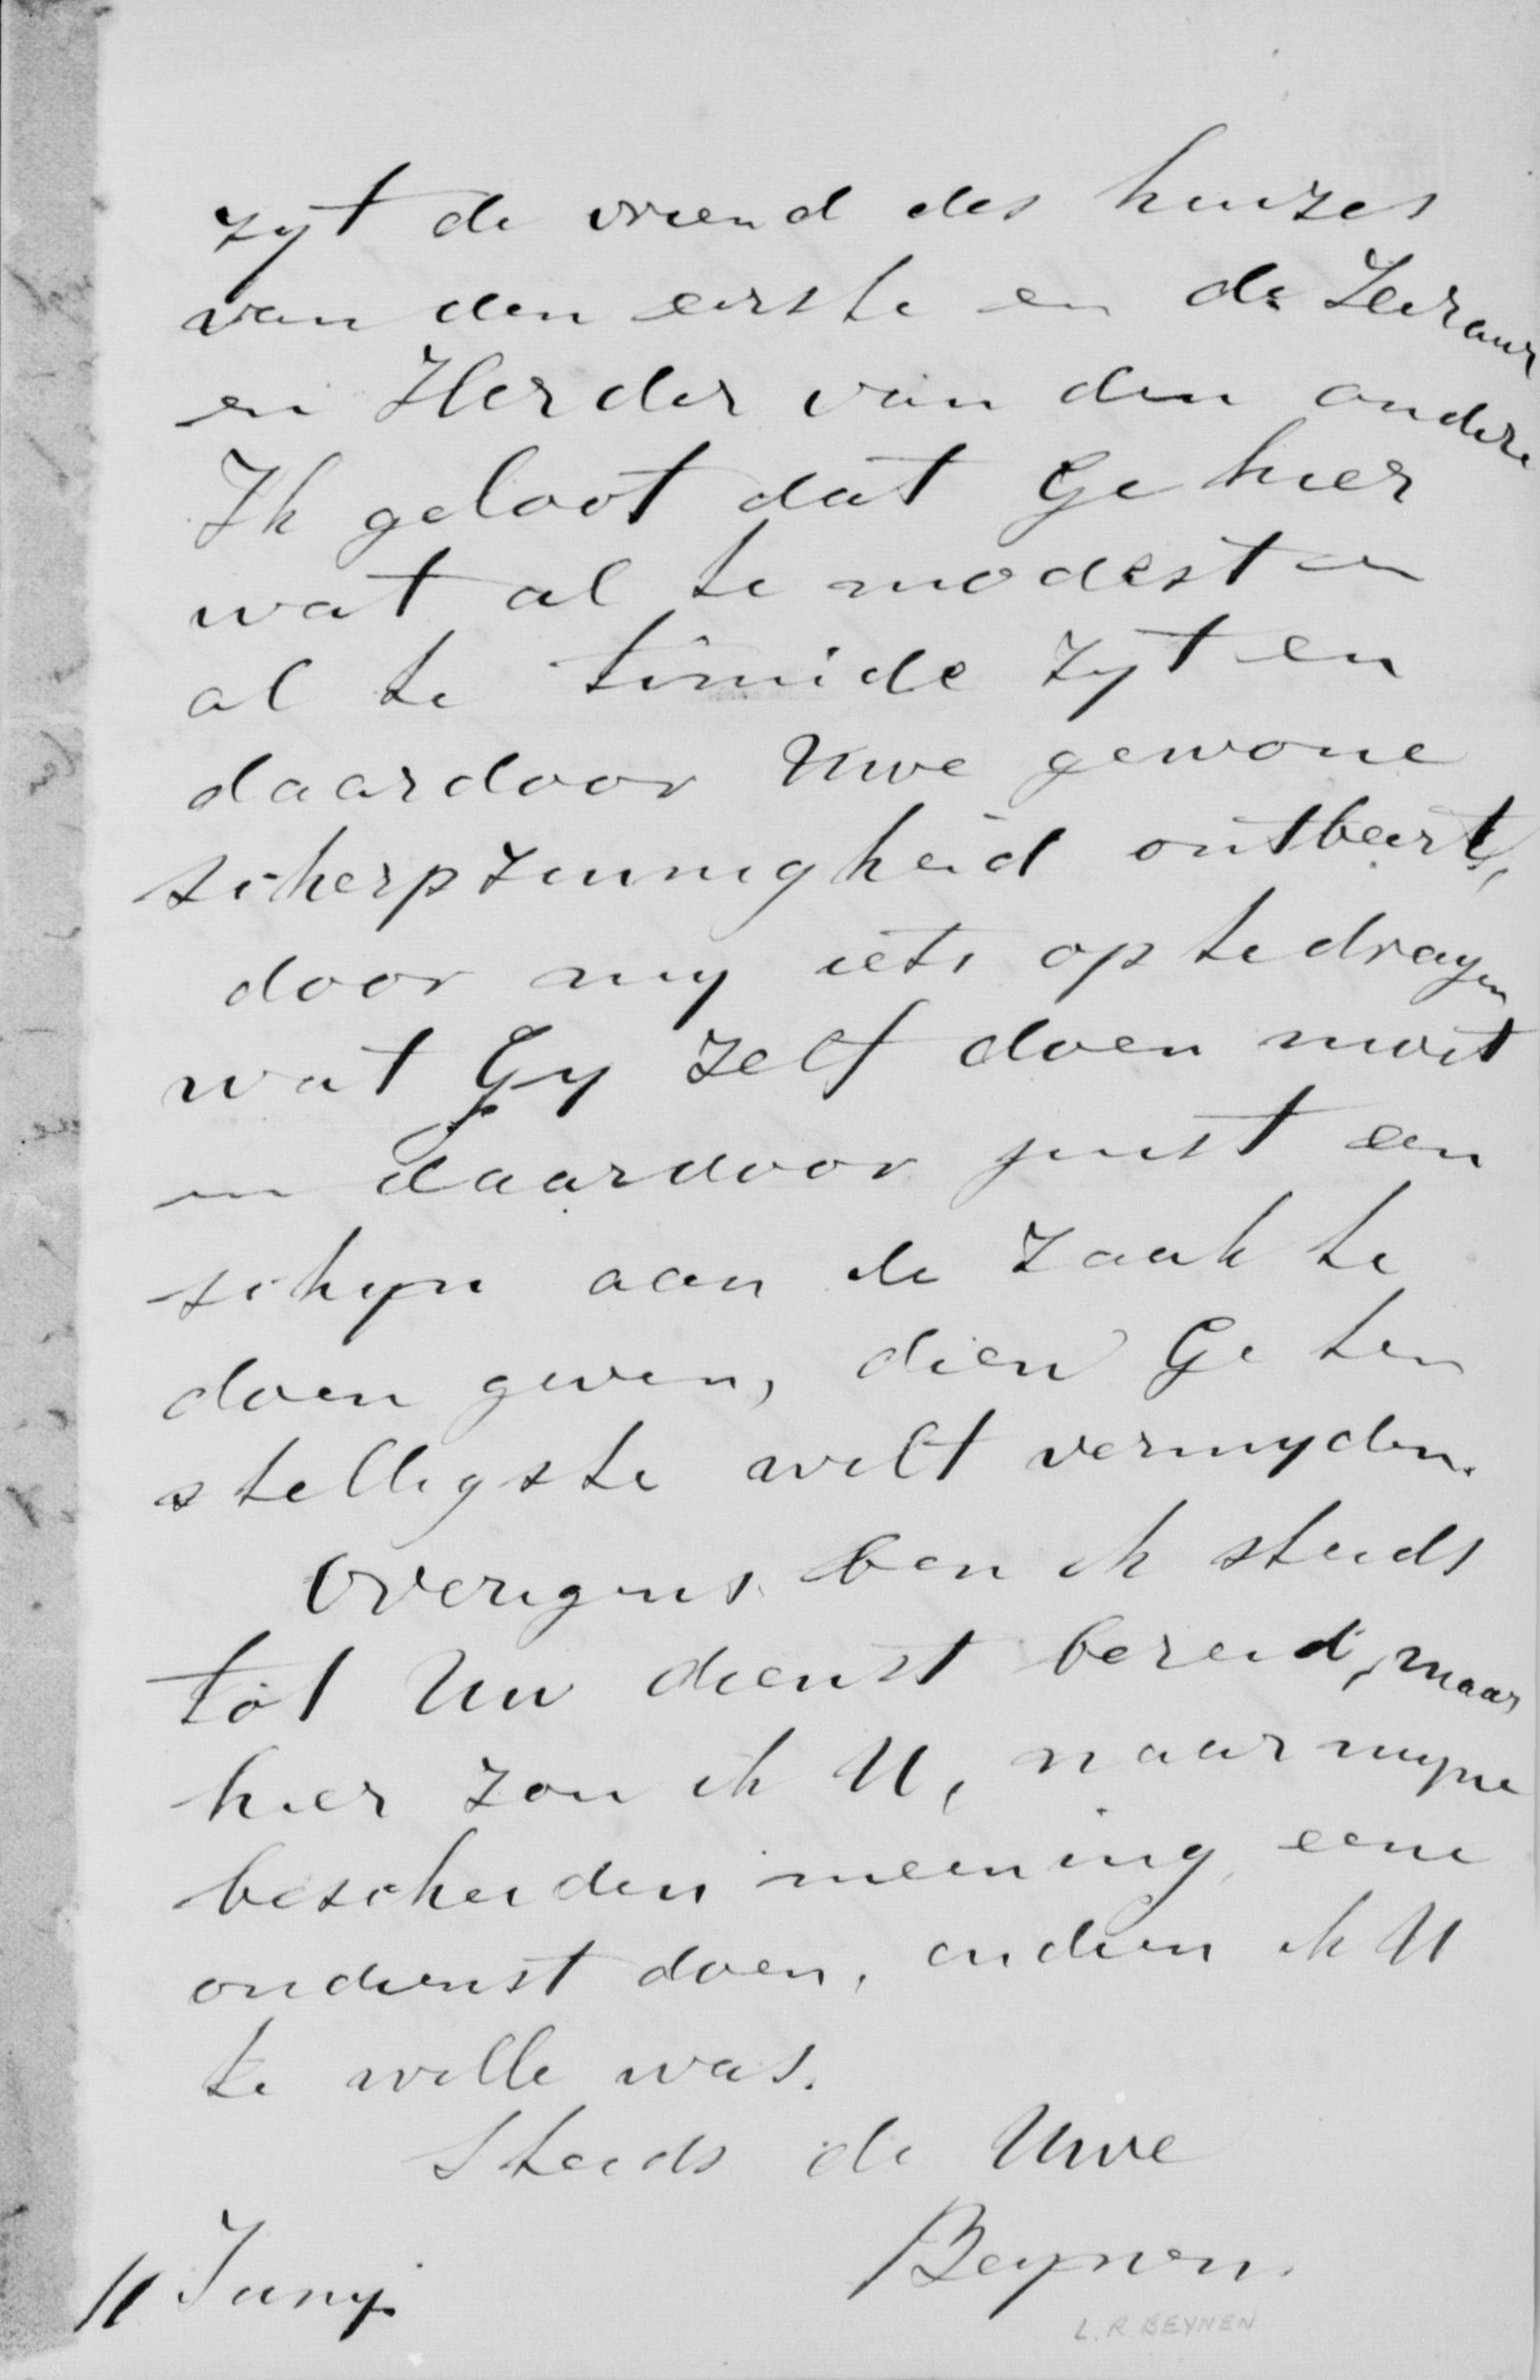 zyt de vriend des huizes
van den eerste en de Leeraar
en Herder van den andere
Ik geloof dat Ge hier
wat al te modest en
al te timide zyt en
daardoor Uwe gewone
scherpzinnigheid ontbeert,
door my iets op te dragen
wat Gy zelf doen moet
en daardoor juist een
schyn aan de zaak te
doen geven, dien Ge ten
stelligste wilt vermyden.
Overigens ben ik steeds
tot Uw dienst bereid, maar
hier zou ik U, naar myne
bescheiden meening eene
ondienst doen, indien ik U
te wille was.
Steeds de Uwe
Beynen.
11 Juny
L. R. BEYNEN